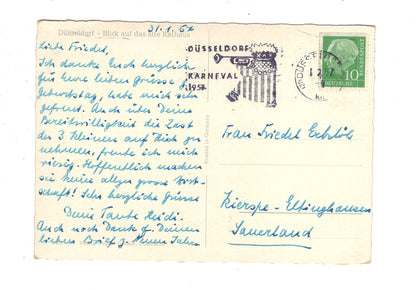 31.1.57
Düsseldorf - Blick auf das alte Rathaus
Liebe Friedel,
Ich danke Euch herzlich
für Eure lieben Grüsse z.
Geburtstag, habe mich sehr
gefreut. Auch über Deine
Bereitwilligkeit die Last
der 3 kleinen auf Dich zu
nehmen, freute ich mich
riesig. Hoffentlich machen
sie keine allzu grosse Wirt-
schaft! Sehr herzliche Grüsse
Deine Tante Heidi.
Auch noch Dank f. Deinen
lieben Brief z. Neuen Jahr.
Printed in Germany
DÜSSELDORF
KARNEVAL
1957
10
DEUTSCHE
Frau Friedel
Kierspe - Elfinghausen
Sauerland